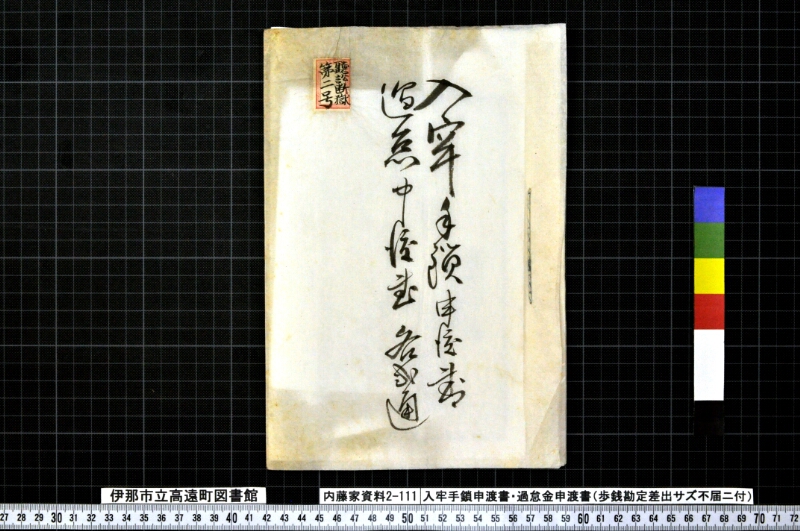 聴訟断獄
第二号
入牢手鎖申渡書
過怠申渡書 各弐通
伊那市立高遠町図書館
内藤家資料2-111 入牢手鎖申渡書・過怠金申渡書(歩銭勘定差出サズ不届ニ付)
27 28 29 30 31 32 33 34 35 36 37 38 39 40 41 42 43 44 45 46 47 48 49 50 51 52 53 54 55 56 57 58 59 60 61 62 63 64 65 66 67 68 69 70 71 72